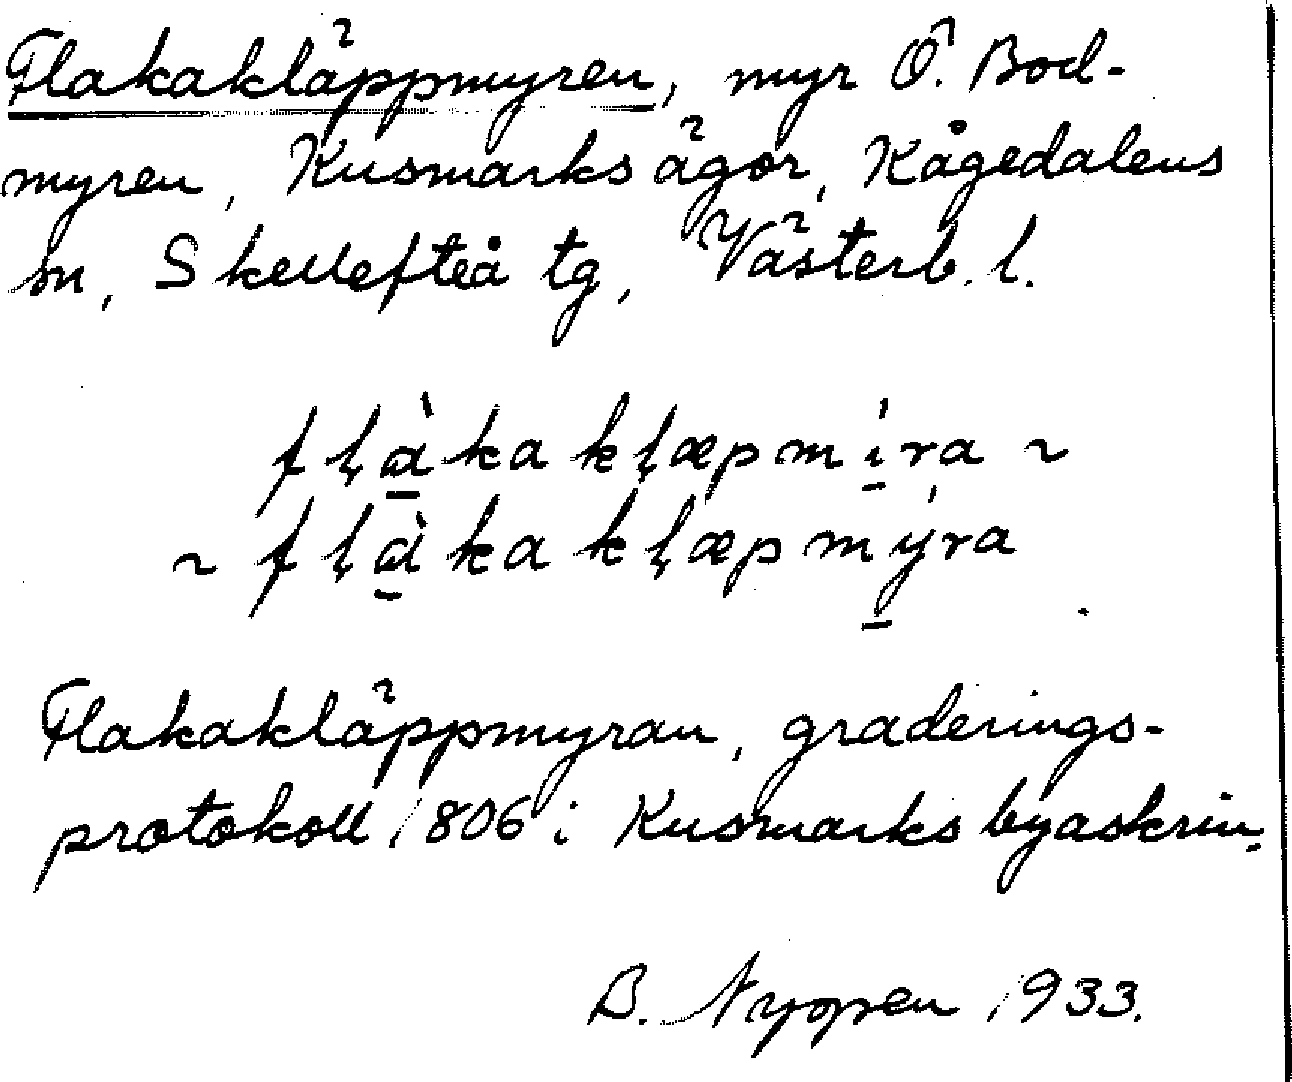 Flakakläppmyren, myr Ö. Bod-
myren, Kusmarks ägor, Kågedalens
sn, Skellefteå tg, Västerb. l.
fḷàkakḷæpmíra ~
~ fḷàkakḷæpmýra
Flakakläppmyran, graderings-
protokoll 1806 i Kusmarks byaskrin.
B. 1933.